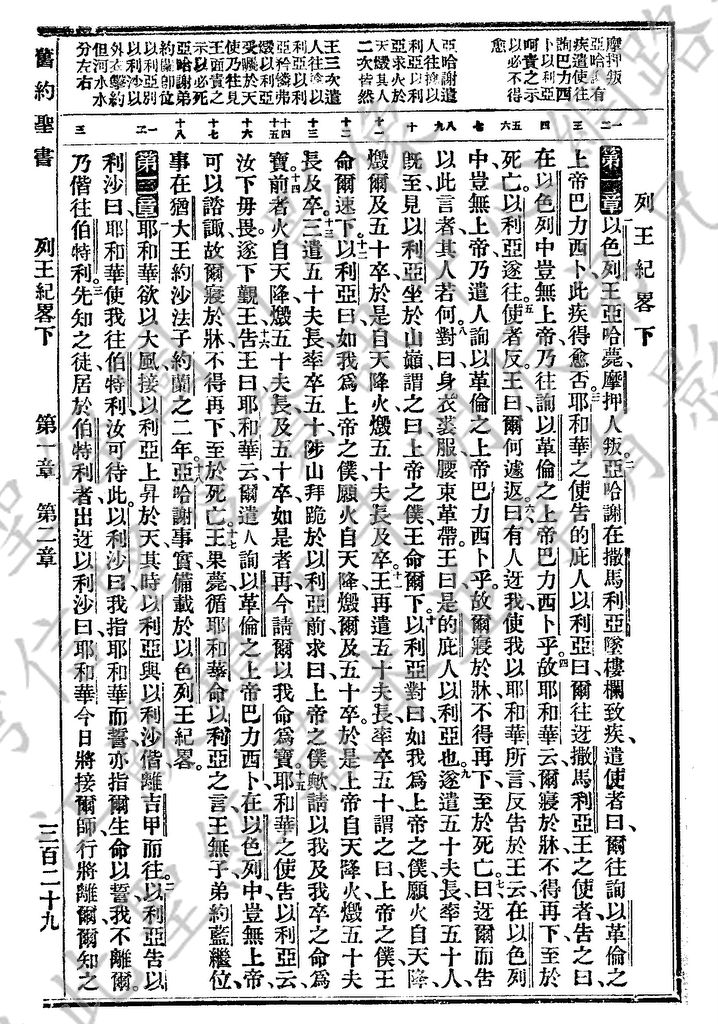 列王紀畧下
第一章以色列王亞哈薨、摩押人叛。亞哈謝在撒馬利亞墜樓欄致疾、遣使者曰、爾往詢以革倫之
上帝巴力西卜、此疾得愈否。耶和華之使告的庶人以利亞曰、爾往迓撒馬利亞王之使者、告之曰、
在以色列中、豈無上帝、乃往詢以革倫之上帝巴力西卜乎。故耶和華云、爾寢於牀、不得再下、至於
死亡。以利亞遂往。使者反、王曰、爾何遽返。曰、有人迓我、使我以耶和華所言、反告於王、云、在以色列
中、豈無上帝、乃遣人詢以革倫之上帝巴力西卜乎。故爾寢於牀、不得再下、至於死亡。曰、迓爾而告
以此言者、其人若何。對曰、身衣裘服、腰束革帶。王曰、是的庶人以利亞也。遂遣五十夫長、率五十人、
既至、見以利亞坐於山巔、謂之曰、上帝之僕、王命爾下。以利亞對曰、如我爲上帝之僕、願火自天降、
燬爾及五十卒。於是自天降火、燬五十夫長及卒。王再遣五十夫長、率卒五十、謂之曰、上帝之僕、王
命爾速下。以利亞曰、如我爲上帝之僕、願火自天降、燬爾及五十卒。於是上帝自天降火、燬五十夫
長及卒。三遣五十夫長、率卒五十、陟山拜跪於以利亞前、求曰、上帝之僕歟、請以我及我卒之命爲
寶、前者火自天降、燬五十夫長、及五十卒、如是者再、今請爾以我命爲寶。耶和華之使告以利亞云、
汝下毋畏。遂下覲王、告王曰、耶和華云、爾遣人詢以革倫之上帝巴力西卜、在以色列中、豈無上帝
可以諮諏、故爾寢於牀、不得再下、至於死亡。王果薨、循耶和華命以利亞之言、王無子、弟約藍繼位、
事在猶大王約沙法子約蘭之二年。亞哈謝事實、備載於以色列王紀畧。
第二章耶和華欲以大風接以利亞上昇於天、其時以利亞與以利沙偕離吉甲而往。以利亞告以
利沙曰、耶和華使我往伯特利、汝可待此。以利沙曰、我指耶和華而誓、亦指爾生命以誓、我不離爾。
乃偕往伯特利。先知之徒居於伯特利者、出迓以利沙曰、耶和華今日將接爾師、行將離爾、爾知之
摩押叛
亞哈謝有
疾遣使往
詢巴力西
卜以利亞
呵責之示
以必不得
愈
亞哈謝遣
人往擒以
利亞以利
亞求火於
天燬其人
二次皆然
王三次遣
人往擒以
利亞以利
亞矜憐弗
燬以利亞
受囑於天
使乃往見
王面責之
示以必死
亞哈謝弟
約蘭卽位
以利亞別
以利沙以
外衣擊約
但河水水
分左右
舊約聖書
列王紀畧下
第一章 第二章
三百二十九